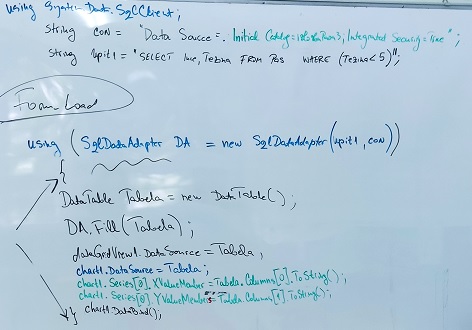 using System.Data.SqlClient;
string con = "Data Source=. Initial Catalog= Integrated Security=True";
string upit1 = "SELECT Ime, Tezina FROM Pas WHERE (Tezina<5)";
Form_Load
using (SqlDataAdapter DA = new SqlDataAdapter(upit1, con))
{
DataTable Tabela = new DataTable();
DA.Fill(Tabela);
dataGridView1.DataSource = Tabela;
chart1.DataSource = Tabela;
chart1.Series[0].XValueMember = Tabela.Columns[0].ToString();
chart1.Series[0].YValueMembers = Tabela.Columns[1].ToString();
chart1.DataBind();
}